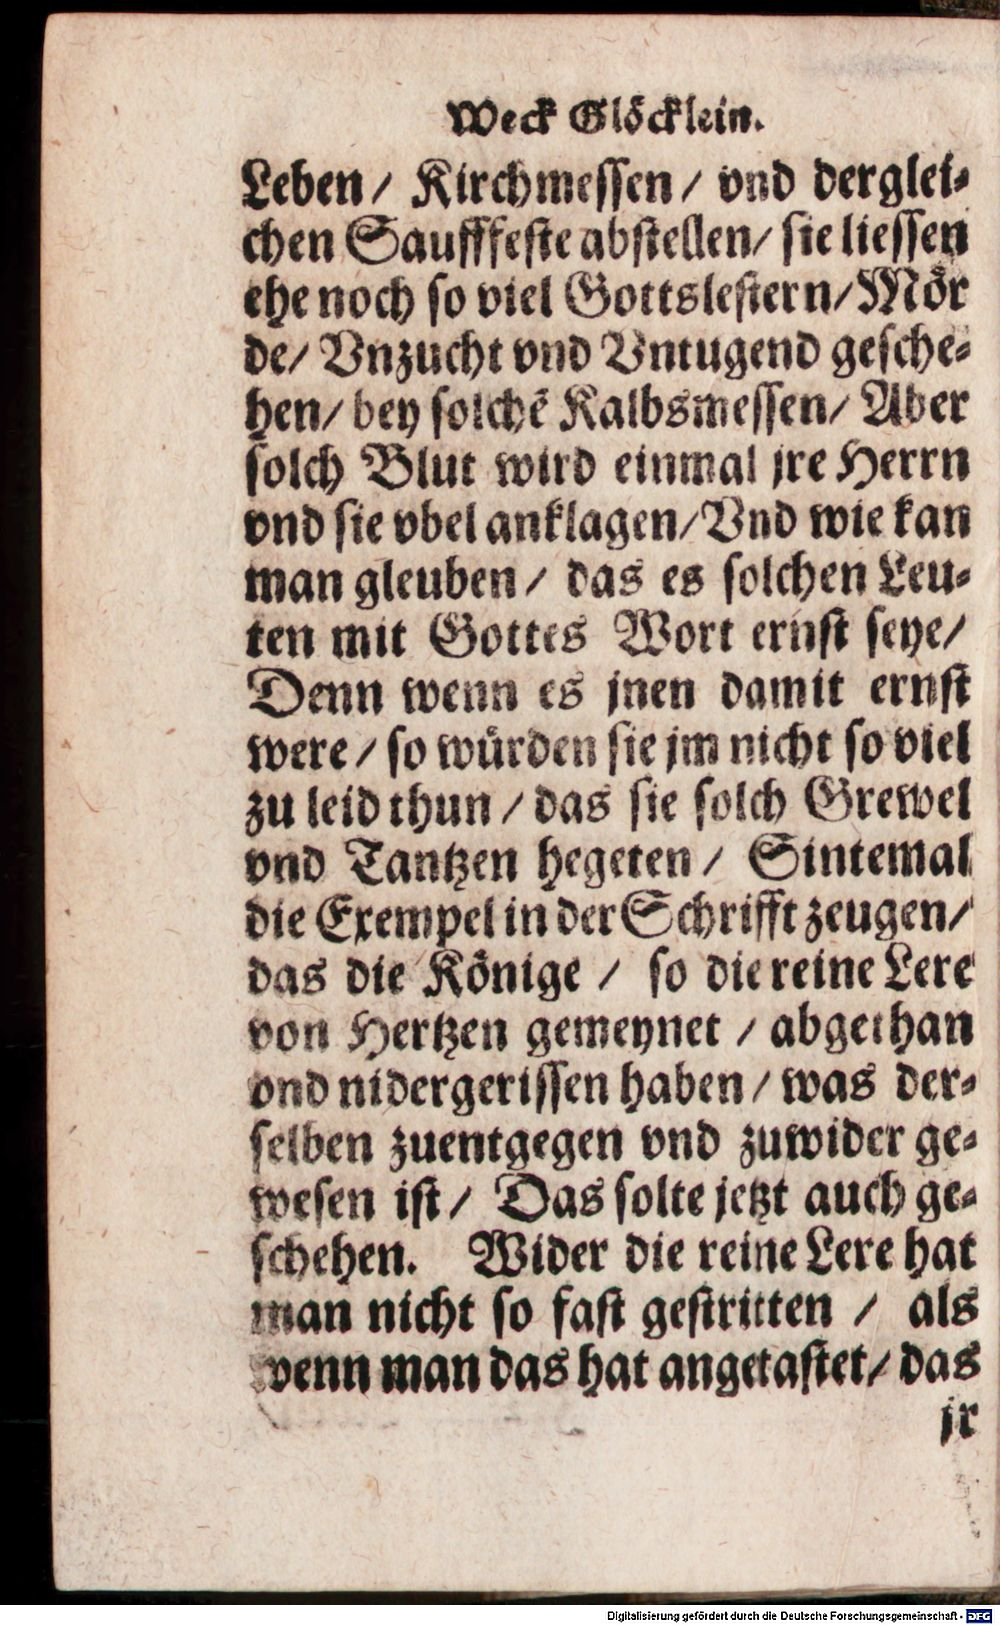 Weck Glöcklein.
Leben/ Kirchmessen/ vnd derglei-
chen Saufffeste abstellen/ sie liessen
ehe noch so viel Gottslestern/ Mör
de/ Vnzucht vnd Vntugend gesche-
hen/ bey solchē Kalbsmessen/ Aber
solch Blut wird einmal jre Herrn
vnd sie vbel anklagen/ Vnd wie kan
man gleuben/ das es solchen Leu-
ten mit Gottes Wort ernst seye/
Denn wenn es jnen damit ernst
were/ so würden sie jm nicht so viel
zu leid thun/ das sie solch Grewel
vnd Tantzen hegeten/ Sintemal
die Exempel in der Schrifft zeugen/
das die Könige/ so die reine Lere
von Hertzen gemeynet/ abgethan
vnd nidergerissen haben/ was der-
selben zuentgegen vnd zuwider ge-
wesen ist/ Das solte jetzt auch ge-
schehen. Wider die reine Lere hat
man nicht so fast gestritten/ als
wenn man das hat angetastet/ das
jr
Digitalisierung gefördert durch die Deutsche Forschungsgemeinschaft - DFG